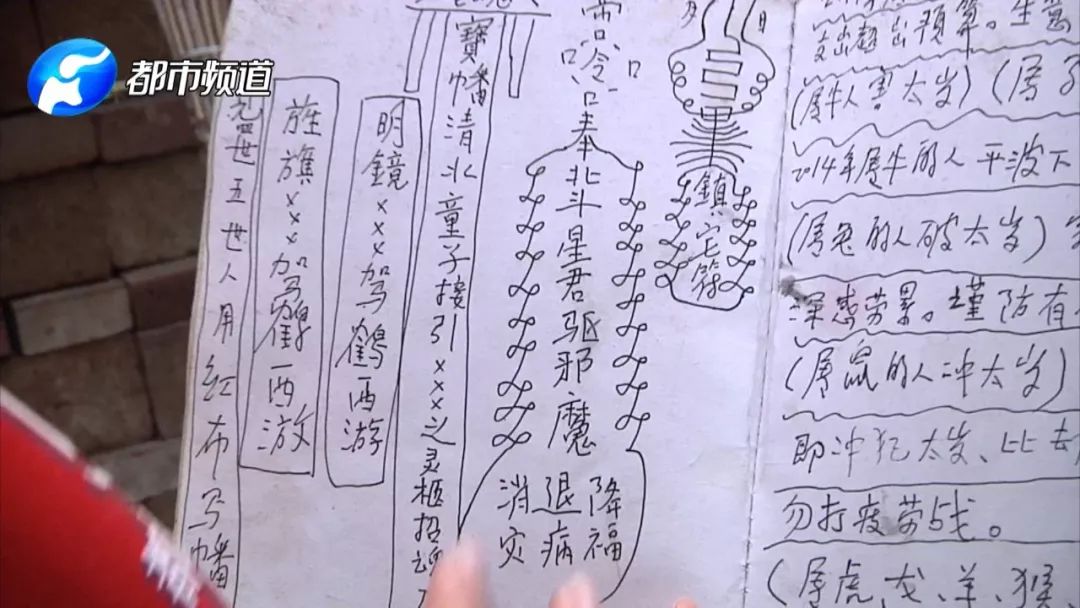 都市频道
敕令
奉北斗星君驱邪魔
消灾
退病
降福
鎮宅符
寶幡清水童子接引×××之灵柩招魂
明鏡×××驾鶴西游
旌旗×××驾鶴西游
世五世人用红布写幡
支出超出预算。生意
(属牛人害太岁)(属
2014年属牛的人平波下
(属兔的人破太岁)
深感劳累。谨防有
(属鼠的人冲太岁)
即冲犯太岁、比去
勿打疲劳战。
(属虎、龙、羊、猴、